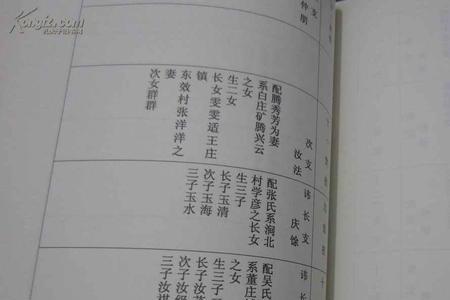 Kongfz.com
支
仲朋
次支
汝法
配腾秀芳为妻
系白庄矿腾兴云
之女
生二女
长女雯雯适王庄
镇
东效村张洋洋之
妻
次女群群
讳长支
庆馀
配张氏系涧北
村学彦之长女
生三子
长子玉清
次子玉海
三子玉水
讳长
配吴氏
系董庄
之女
生三子
长子汝
次子汝
三子汝